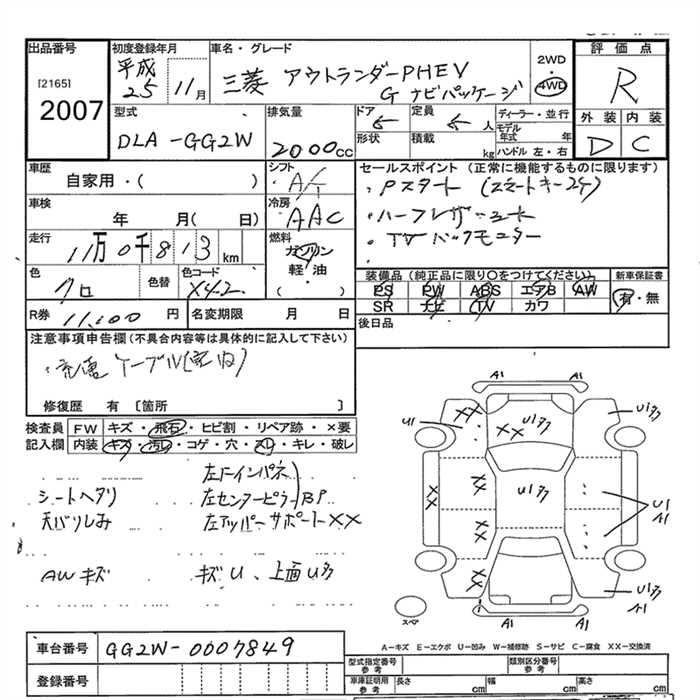 出品番号 初度登録年月 車名・グレード 評価点
[2165] 2007
平成 25 11月
三菱 アウトランダーPHEV
G ナビパッケージ
2WD
4WD
R
外装 内装
D C
型式 排気量 ドア 定員 ディーラー・並行
DLA-GG2W 2000cc 人 モデル年式 年
形状 積載 kg ハンドル 左・右
車歴 シフト セールスポイント (正常に機能するものに限ります)
自家用・( )
・Pスタート (スマートキー2ケ)
車検 冷房
年 月( 日) AAC
・ハーフレザーシート
・TV バックモニター
走行 燃料
11万0千813km ガソリン
軽・油
( )
色 色替 色コード
クロ X42
装備品 (純正品に限り○をつけてください) 新車保証書
PS PW ABS エアB AW 有・無
SR ナビ TV カワ
R券 11,100円 名変期限 月 日
後日品
注意事項申告欄(不具合内容等は具体的に記入して下さい)
・充電ケーブル(室内)
修復歴 有 [箇所 ]
検査員 FW キズ・飛石・ヒビ割・リペア跡・×要
記入欄 内装 キズ・汚レ・コゲ・穴・スレ・キレ・破レ
左にインパネ
シートヘタリ 左センターピラーBP
天バリしみ 左アッパーサポートXX
AWキズ キズU、上面Uタ
A1 A1
U1 XX XX U1タ U1タ
XX XX U1タ U1
A1
XX XX
U1タ
スペア A1 A1
A−キズ E−エクボ U−凹み W−補修跡 S−サビ C−腐食 XX−交換済
車台番号 GG2W-0007849
登録番号
型式指定番号 参考 類別区分番号 参考
車庫証明用 参考 長さ cm 幅 cm 高さ cm